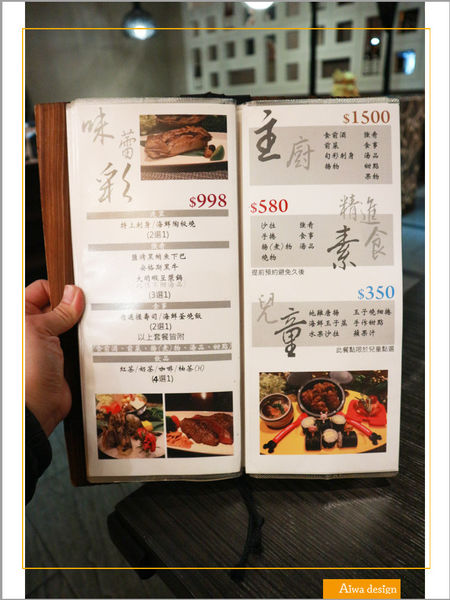 味蕾彩
$998
特上刺身/海鮮陶板燒
(2選1)
鹽烤黑鮪魚下巴
安格斯黑牛
大明蝦豆漿鍋
(3選1)
食事
特選握壽司/海鮮釜燒飯
(2選1)
以上套餐皆附
飲品
紅茶/奶茶/咖啡/柚茶(H)
(4選1)
主廚
$1500
食前酒 強肴
前菜 食事
旬彩刺身 湯品
揚物 甜點
果物
$580
精進素食
沙拉 強肴
手捲 食事
揚(煮)物 湯品
燒物
提前預約避免久候
$350
兒童
地雞唐揚 玉子燒細捲
海鮮玉子蒸 手作甜點
水果沙拉 蘋果汁
此餐點限於兒童點選
Aiwa design